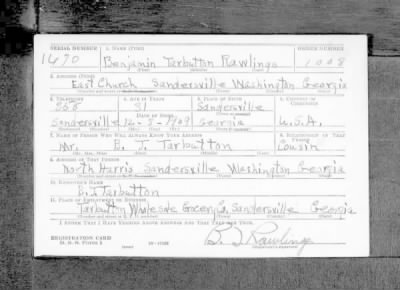 SERIAL NUMBER 1. NAME (Print) ORDER NUMBER
1490 Benjamin Tarbutton Rawlings 1008
2. ADDRESS (Print)
East Church Sandersville Washington Georgia
3. TELEPHONE 4. AGE IN YEARS 5. PLACE OF BIRTH 6. COUNTRY OF CITIZENSHIP
31 Sandersville
Sandersville 1909 Georgia U.S.A.
7. NAME OF PERSON WHO WILL ALWAYS KNOW YOUR ADDRESS 8. RELATIONSHIP OF THAT PERSON
Mr. B. J. Tarbutton Cousin
9. ADDRESS OF THAT PERSON
North Harris Sandersville Washington Georgia
10. EMPLOYER'S NAME
B. J. Tarbutton
11. PLACE OF EMPLOYMENT OR BUSINESS
Tarbutton Wholesale Grocery Co. Sandersville Georgia
I AFFIRM THAT I HAVE VERIFIED ABOVE ANSWERS AND THAT THEY ARE TRUE.
REGISTRATION CARD
D. S. S. FORM 1
B. T. Rawlings